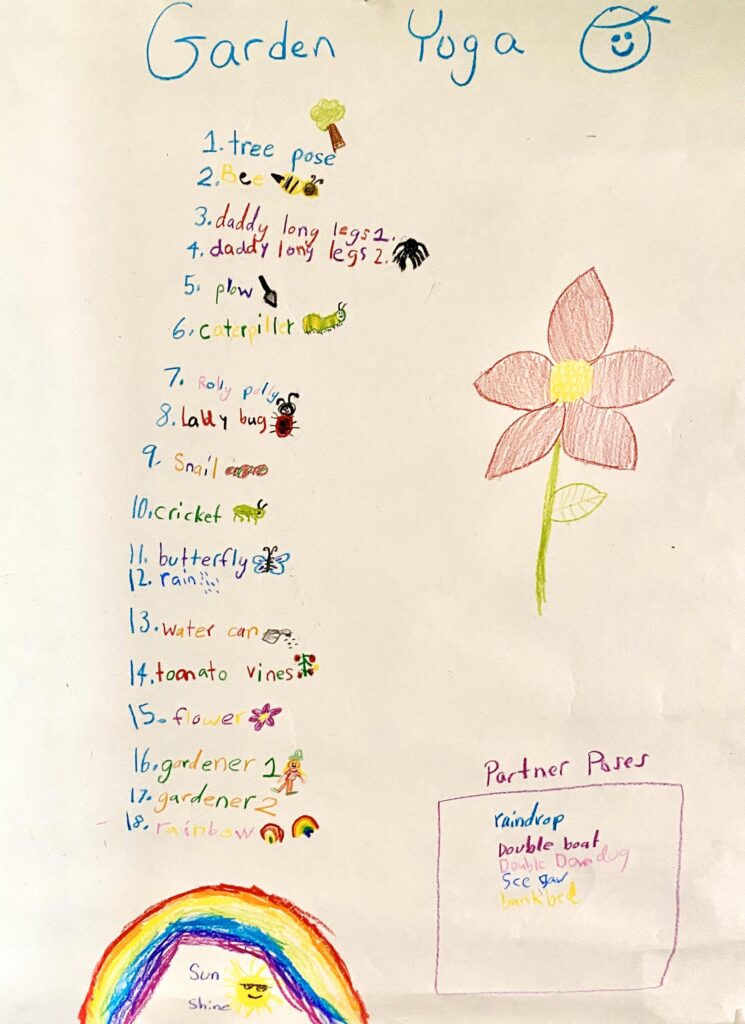 Garden Yoga
1. tree pose
2. Bee
3. daddy long legs 1.
4. daddy long legs 2.
5. plow
6. caterpiller
7. Rolly polly
8. Lady bug
9. Snail
10. cricket
11. butterfly
12. rain
13. water can
14. toamato vines
15. flower
16. gardener 1
17. gardener 2
18. rainbow
Partner Poses
raindrop
Double boat
Double Down dog
See saw
bunk bed
Sun
Shine